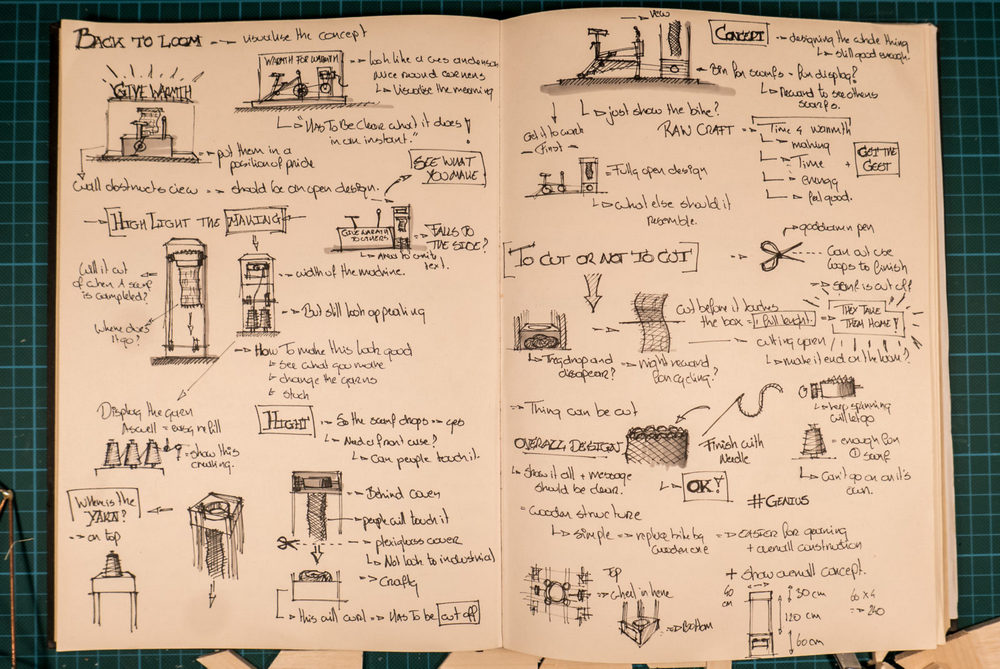 BACK TO LOOM
visualise the concept
GIVE WARMTH
WARMTH FOR WARMTH
look like a
nice round corners
Visualise the meaning
"Has To Be Clear what it does
in an instant."
put them in a
position of pride
Wall obstructs view
should be an open design.
SEE WHAT
YOU MAKE
HIGH LIGHT THE MAKING
GIVE WARMTH
TO OTHERS
FALLS TO
THE SIDE?
text.
Will it cut
of when A scarf
is completed?
Where does
it go?
width of the machine.
But still look appealing
How To make this look good
see what you make
change the yarns
stuck
Display the yarn
As well = easy refill
show this
HIGHT
So the scarf drops
yes
Need a front case?
Can people touch it.
Where is the
YARN?
on top
Behind cover
people will touch it
plexiglass cover
Not look to industrial
Crafty
this will curl
Has To be cut off
view
CONCEPT
designing the whole thing
still good enough.
fun display?
Reward to see others
scarfs.
just show the bike?
Get it to work
First
RAW CRAFT
Time & warmth
making
Time
energy
feel good.
+
GET THE
GEEST
Fully open design
what else should it
Resemble.
TO CUT OR NOT TO CUT
goddamn pen
Can cut use
loops to finish
scarf is cut off
cut before it touches
the box = full length
THEY TAKE
THEM HOME!
They drop and
disapear?
might reward
for cycling?
cutting yarn
make it end on the loom?
Thing can be cut
keep spinning
will let go
OVERALL DESIGN
Finish with
Needle
enough for
1 scarf
show it all + message
should be clear.
OK!
Can't go on on it's
own.
#GENIUS
wooden structure
simple
replace bike by
wooden one
EASIER for gearing
+ overall construction
TOP
wheel in here
Bottom
+ show overall concept.
40
cm
30 cm
120 cm
60 cm
60 x 4
240